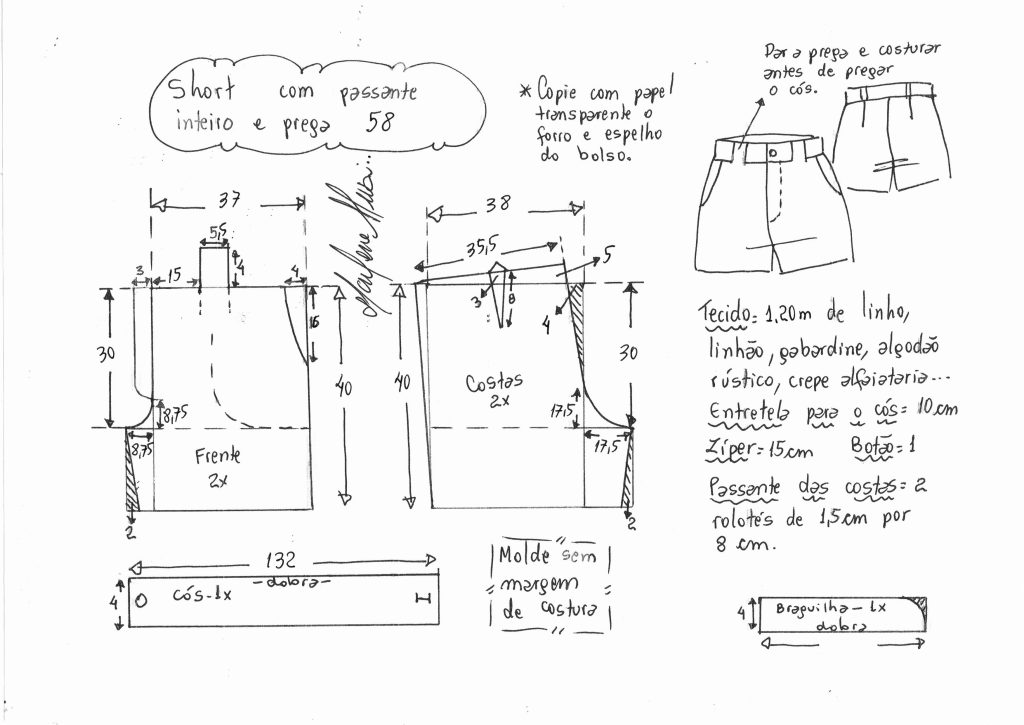 Short com passante
inteiro e prega 58
* Copie com papel
transparente o
forro e espelho
do bolso.
Dar a prega e costurar
antes de pregar
o cós.
37
5,5
4
3
15
4
15
30
40
8,75
8,75
Frente
2x
2
38
35,5
5
3
8
4
40
30
Costas
2x
17,5
17,5
2
Tecido = 1,20m de linho,
linhão, gabardine, algodão
rústico, crepe alfaiataria...
Entretela para o cós = 10cm
Zíper = 15cm Botão = 1
Passante das costas = 2
rolotés de 1,5cm por
8 cm.
132
- dobra -
cós - 1x
4
Molde sem
margem
de costura
4
Braguilha - 1x
dobra